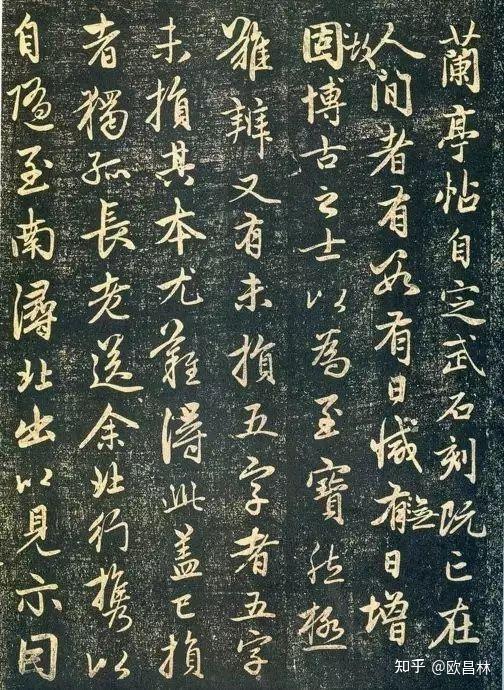 蘭亭帖自定武石刻既亡在
人間者有數有日減有無日增
固故博古之士以為至寶然極
難辨又有未損五字者五字
未損其本尤難得此蓋已損
者獨孤長老送余北行攜以
自隨至南潯北出以見示因
知乎 @欧昌林